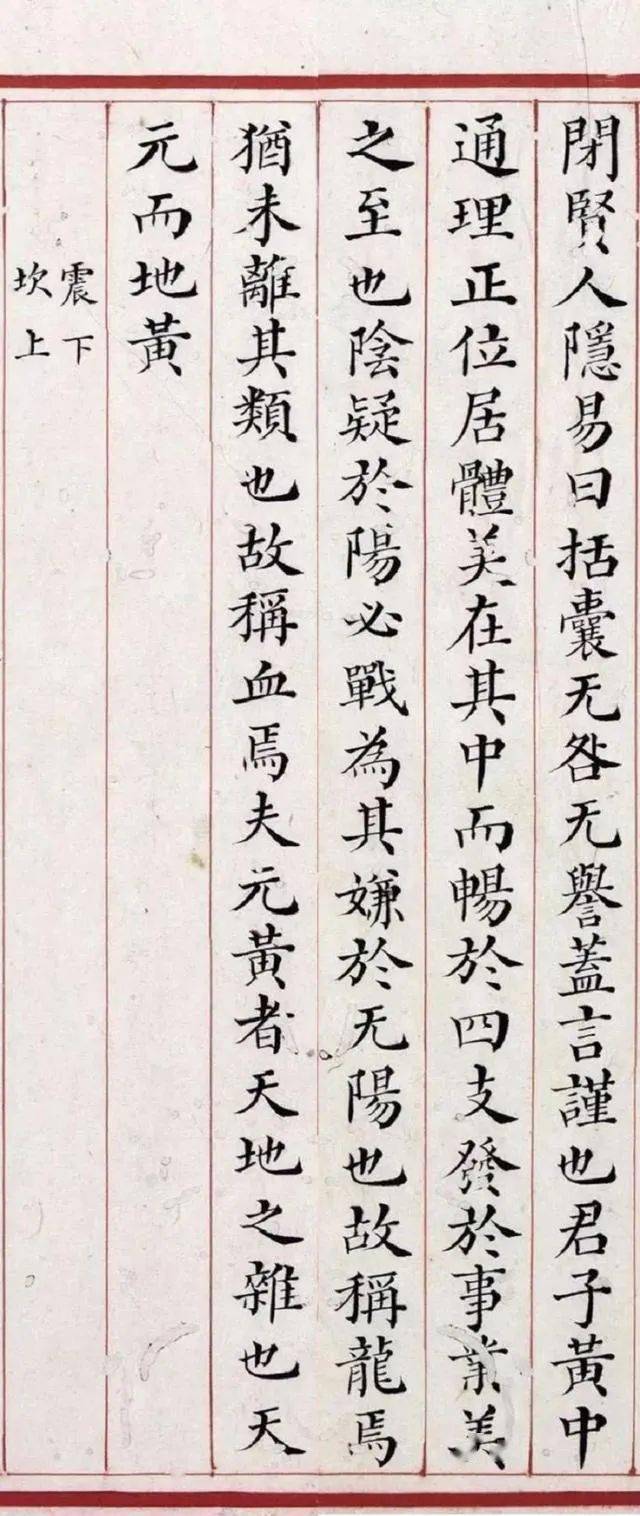 閉賢人隱易曰括囊无咎无譽蓋言謹也君子黃中
通理正位居體美在其中而暢於四支發於事業美
之至也陰疑於陽必戰為其嫌於无陽也故稱龍焉
猶未離其類也故稱血焉夫元黃者天地之雜也天
元而地黃
震下
坎上